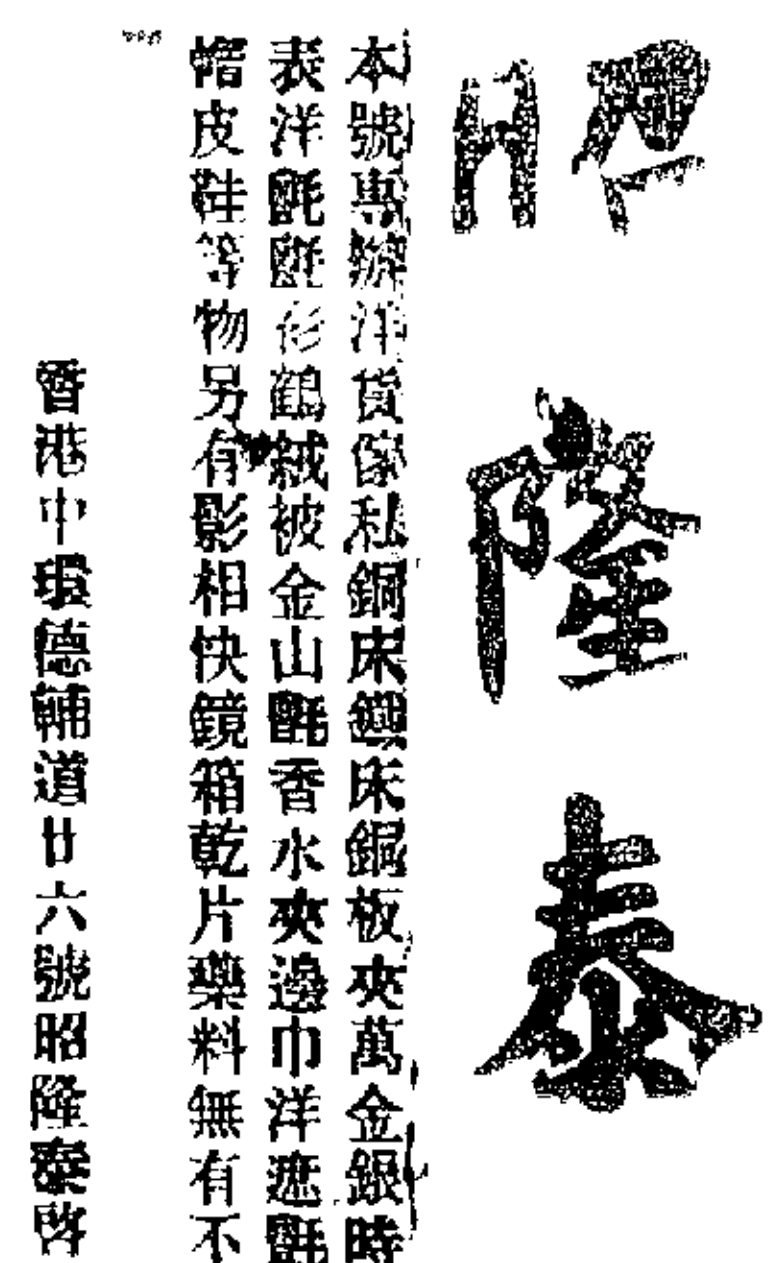 昭隆泰
本號專辦洋貨傢私銅床鐵床銅板夾萬金銀時
表洋氈氈衫鶴絨被金山氈香水夾邊巾洋遮氈
帽皮鞋等物另有影相快鏡箱乾片藥料無有不
香港中環德輔道廿六號昭隆泰啓